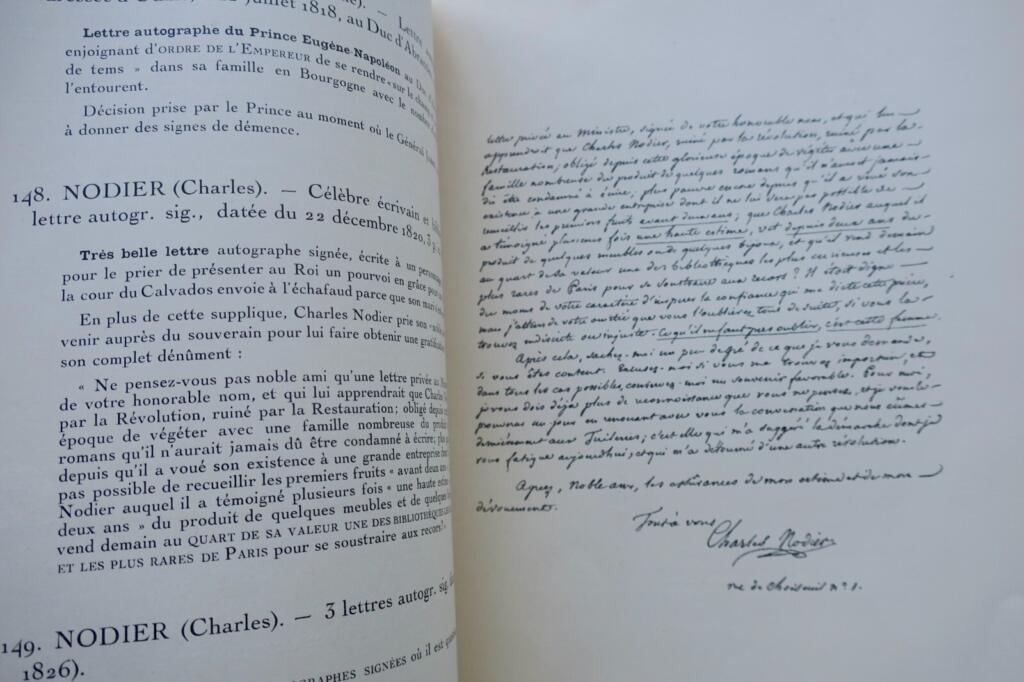 juillet 1818, au Duc d'Abrantès
Lettre autographe du Prince Eugène Napoléon au Duc
enjoignant d'ORDRE DE L'EMPEREUR de se rendre « sur le champ
de tems » dans sa famille en Bourgogne avec le nombre
l'entourent.
Décision prise par le Prince au moment où le Général
à donner des signes de démence.
148. NODIER (Charles). — Célèbre écrivain et
lettre autogr. sig., datée du 22 décembre 1820, 3 p.
Très belle lettre autographe signée, écrite à un personnage
pour le prier de présenter au Roi un pourvoi en grâce pour
la cour du Calvados envoie à l'échafaud parce que son mari
En plus de cette supplique, Charles Nodier prie son « noble
venir auprès du souverain pour lui faire obtenir une gratification
son complet dénûment :
« Ne pensez-vous pas noble ami qu'une lettre privée au
de votre honorable nom, et qui lui apprendrait que Charles
par la Révolution, ruiné par la Restauration; obligé depuis
époque de végéter avec une famille nombreuse du produit
romans qu'il n'aurait jamais dû être condamné à écrire; plus
depuis qu'il a voué son existence à une grande entreprise dont
pas possible de recueillir les premiers fruits « avant deux ans »
Nodier auquel il a témoigné plusieurs fois « une haute estime
deux ans » du produit de quelques meubles et de quelques
vend demain au QUART DE SA VALEUR UNE DES BIBLIOTHÈQUES
ET LES PLUS RARES DE PARIS pour se soustraire aux recors? »
149. NODIER (Charles). — 3 lettres autogr. sig.
1826).
SIGNÉES où il est
lettre privée au Ministre, signée de votre honorable nom, et qui lui
apprendroit que Charles Nodier, ruiné par la révolution, ruiné par la
Restauration; obligé depuis cette glorieuse époque de végéter avec une
famille nombreuse du produit de quelques romans qu'il n'auroit jamais
dû être condamné à écrire; plus pauvre encore depuis qu'il a voué son
existence à une grande entreprise dont il ne lui sera pas possible de
recueillir les premiers fruits avant deux ans; que Charles Nodier auquel il
a témoigné plusieurs fois une haute estime, vit depuis deux ans du
produit de quelques meubles ou de quelques bijoux, et qu'il vend demain
au quart de sa valeur une des bibliothèques les plus curieuses et les
plus rares de Paris pour se soustraire aux recors? Il étoit digne
du moins de votre caractère d'inspirer la confiance qui me dicte cette prière,
mais j'attens de votre amitié que vous l'oublierez tout de suite, si vous la
trouvez indiscrète ou injuste. Ce qu'il ne faut pas oublier, c'est cette femme.
Après cela, sachez-moi un peu de gré de ce que je vous demande,
si vous êtes content. Excusez-moi si vous me trouvez importun, et
dans tous les cas possibles, conservez-moi un souvenir favorable. Pour moi,
je vous dois déjà plus de reconnoissance que vous ne pensez, et je vous le
prouverai un jour en renouant avec vous la conversation que nous eûmes
dernièrement aux Tuileries; c'est elle qui m'a suggéré la démarche dont je
vous fatigue aujourd'hui, et qui m'a détourné d'une autre résolution.
Agréez, Noble ami, les assurances de mon estime et de mon
dévouement.
Tout à vous
Charles Nodier
rue de Choiseuil n° 1.